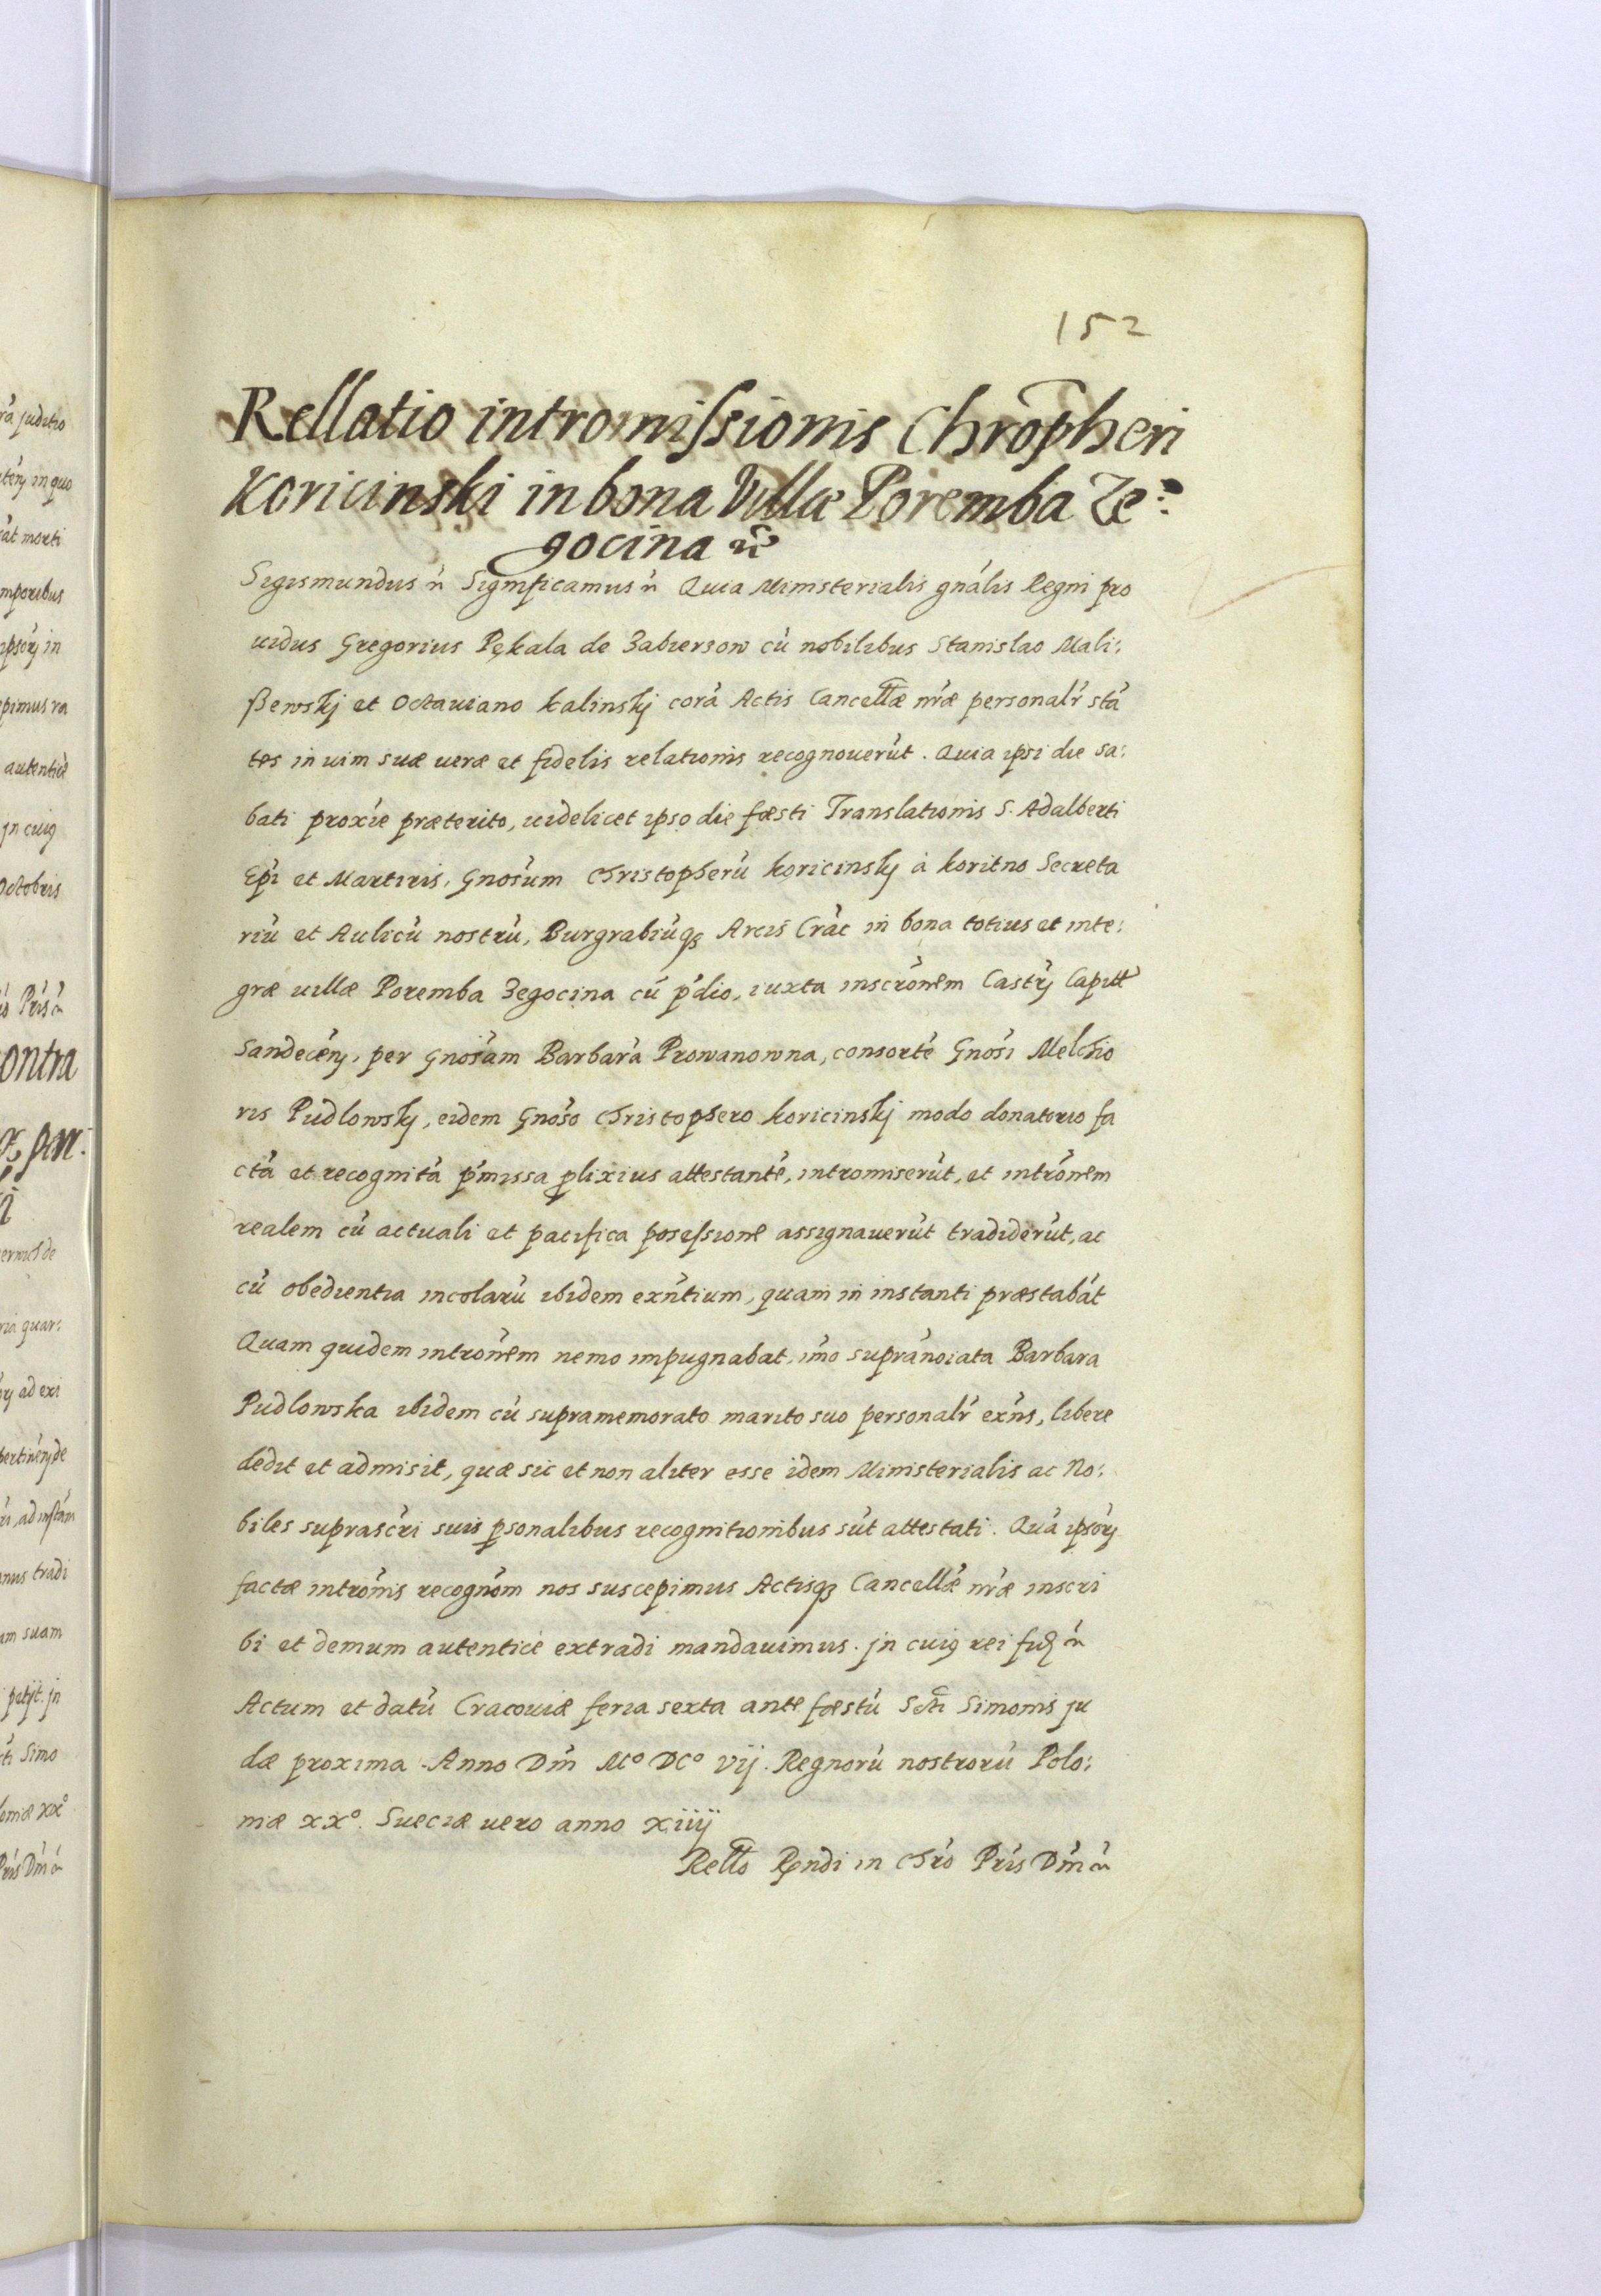 152
Rellatio intromissionis Chro̅pheri
Koricinski in bona Villæ Poremba Ze:
gocina etc̃
Sigismundus etc̃ Significamus etc̃ Quia Ministerialis gn̄alis Regni pro
uidus Gregorius Pękala de Zabierzow cū nobilibus Stanislao Mali:
ßewskj et Octauiano Kalinskj corā Actis Cancellæ nr̄æ personalr̄ stā
tes in uim suæ ueræ et fidelis relationis recognouerūt. Quia ipsi die sa:
bati proxīe præterito, uidelicet ipso die fæsti Translationis S. Adalberti
Ep̄i et Martiris, Gnosūm Christopherū Koricinskj à Koritno Secreta
riū et Aulicū nostrū, Burgrabiūq₃ Arcis Crāc in bona totius et inte:
græ uillæ Poremba Zegocina cū p̄dio, iuxta inscrōnem Castrj Capitl̄
Sandecēn, per Gnosām Barbarā Prowanowna, consortē Gnosī Melchio
ris Pudlowskj, eidem Gnosō Christophero Koricinskj modo donatorio fa
ctā et recognitā p̄missa ꝓlixius attestantē, intromiserūt, et intrōnem
realem cū actuali et pacifica posessionē assignauerūt tradiderūt, ac
cū obedientia incolarū ibidem exn̄tium, quam in instanti præstabāt
Quam quidem intrōnem nemo impugnabat, im̄o supranōiata Barbara
Pudlowska ibidem cū supramemorato marito suo personalr̄ exn̄s, libere
dedit et admisit, quæ sic et non aliter esse idem Ministerialis ac No:
biles suprascr̄i suis ꝑsonalibus recognitionibus sūt attestati. Quā ipsorꝫ
factæ intrōnis recognōm nos suscepimus Actisq₃ Cancellæ nr̄æ inscri
bi et demum autentice extradi mandauimus. Jn cuiꝰ rei fid̄ etc̃
Actum et datū Cracouiæ feria sexta ante fæstū Scti̅ Simonis Ju
dæ proxima. Anno Dn̄i M° DC° Vij. Regnorū nostrorū Polo:
niæ xx°. Sueciæ uero anno xiiij
Rello̅ Rn̄di in Chr̄o Pr̄is Dn̄i etc̃